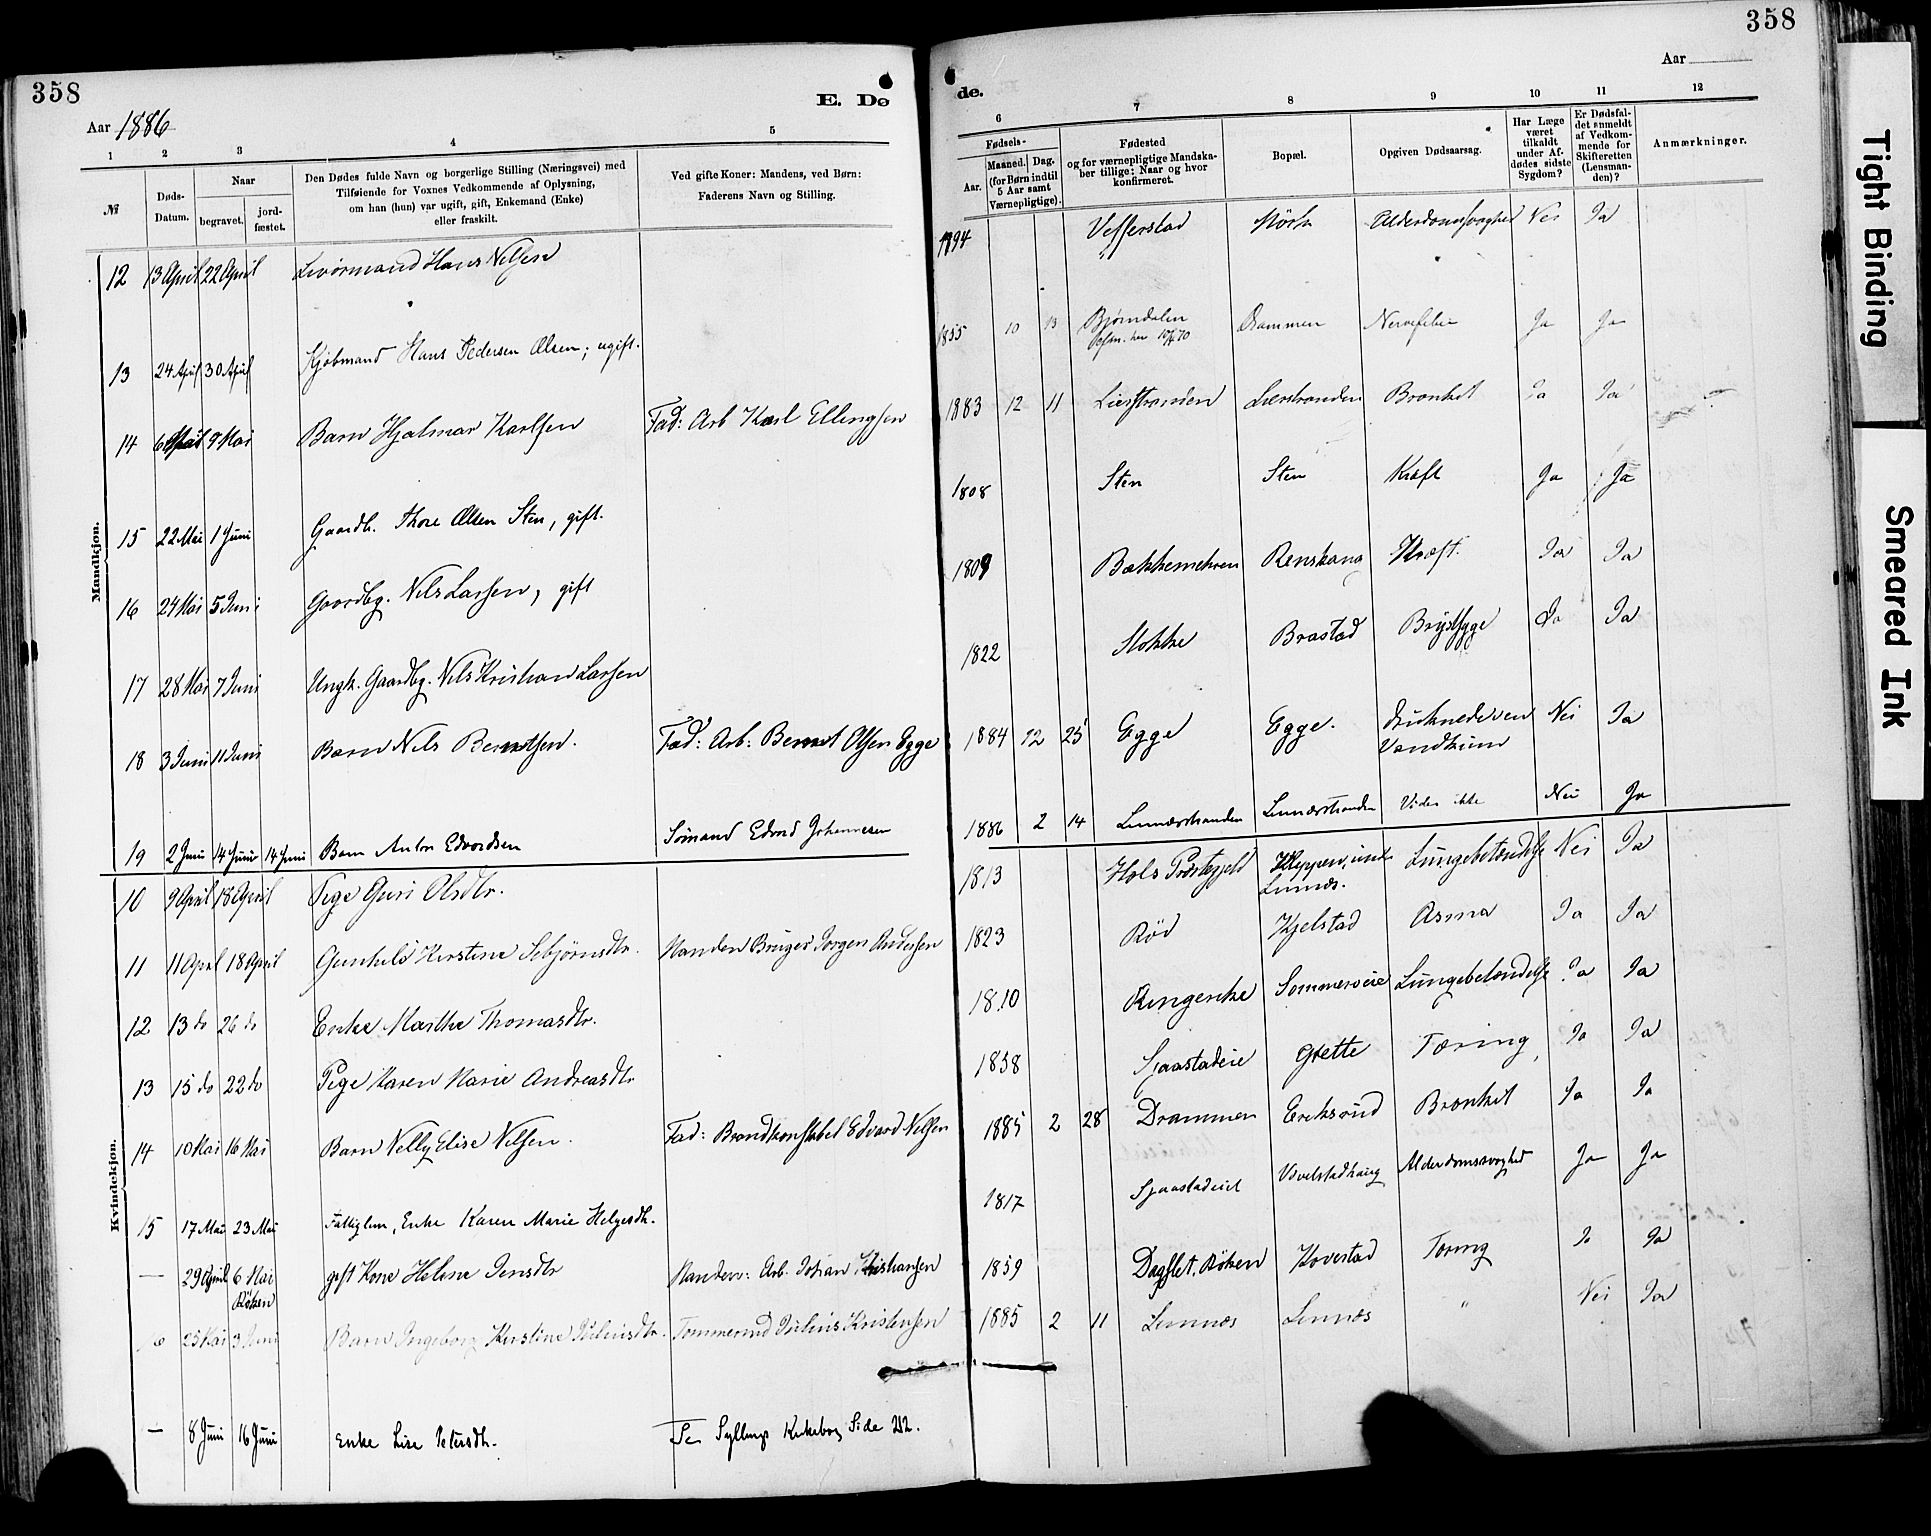 358
Aar 1886
E. Dø
1 2 3 4 5
№
Døds-
Datum.
Naar
begravet.
jord-
fæstet.
Den Dødes fulde Navn og borgerlige Stilling (Næringsvei) med
Tilføiende for Voxnes Vedkommende af Oplysning,
om han (hun) var ugift, gift, Enkemand (Enke)
eller fraskilt.
Ved gifte Koner: Mandens, ved Børn:
Faderens Navn og Stilling.
Mandkjøn.
12 13 April 22 April Livørmand Hans Nilsen
13 24 April 30 April Kjøbmand Hans Pedersen Olsen; ugift.
14 6 Mai 9 Mai Barn Hjalmar Karlsen Fad: Arb Karl Ellingsen
15 22 Mai 1 Juni Gaardb. Thore Olsen Sten, gift.
16 24 Mai 5 Juni Gaardbg. Nils Larsen, gift
17 28 Mai 7 Juni Ungk. Gaardbg. Nils Kristian Larsen
18 3 Juni 11 Juni Barn Nils Berntsen. Fad: Arb: Bernt Olsen Egge
19 2 Juni 14 Juni 14 Juni Barn Anton Edvardsen Sømand Edvard Johannesen
Kvindekjøn.
10 9 April 18 April Pige Guri Olsdtr.
11 11 April 18 April Gunhild Kirstine Sebjørnsdtr. Manden Bruger Jørgen Andersen
12 13 do 26 do Enke Marthe Thomasdtr.
13 15 do 22 do Pige Karen Marie Andreasdtr
14 10 Mai 16 Mai Barn Nelly Elise Nilsen. Fad: Brandkonstabel Edvard Nilsen
15 17 Mai 23 Mai Fattiglem, Enke Karen Marie Helgesdtr.
— 29 April 6 Mai gift Kone Helene Jensdtr Manden: Arb. Johan Kristiansen
Røken
25 Mai 3 Juni Barn Ingeborg Kirstine Juliusdtr. Tømmermd Julius Kristensen
— 8 Juni 16 Juni Enke Lise Petersdtr. Se Syllings Kirkebog Side 212.
358
Aar
de.
6 7 8 9 10 11 12
Fødsels-
Aar.
Maaned. Dag.
(for Børn indtil
5 Aar samt
Værnepligtige).
Fødested
og for værnepligtige Mandska-
ber tillige: Naar og hvor
konfirmeret.
Bopæl.
Opgiven Dødsaarsag.
Har Læge
været
tilkaldt
under Af-
dødes sidste
Sygdom?
Er Dødsfal-
det anmeldt
af Vedkom-
mende for
Skifteretten
(Lensman-
den)?
Anmærkninger.
1794 Vefferstad Mørk Alderdomssvaghed Nei Ja
1855 10 13 Bjørndalen Drammen Nervefeber Ja Ja
1883 12 11 Lierstranden Lierstranden Bronkit Ja Ja
1808 Sten Sten Kræft Ja Ja
1809 Renskaug Kræft. Ja Ja
1822 Stokke Brastad Brystsyge Ja Ja
1884 12 25 Egge Egge. druknede i en Nei Ja
1886 2 14 Linnæsstranden Linnæsstranden Vides ikke Nei Ja
1813 Hols Præstegjeld Lungebetændelse Nei Ja
Linnæs.
1823 Rød Kjelstad Asma Ja Ja
1810 Ringerike Sommerveie Lungebetændelse Ja Ja
1858 Sjaastadeie Grette Tæring Ja Ja
1885 2 28 Drammen Eriksrud Bronkit Ja Ja
1817 Sjaastadeiet Alderdomssvaghed Ja Ja
1859 Dagslet, Røken Hovestad Tæring Ja Ja
1885 2 11 Linnæs Linnæs " Nei Ja
Tight Binding
Smeared Ink